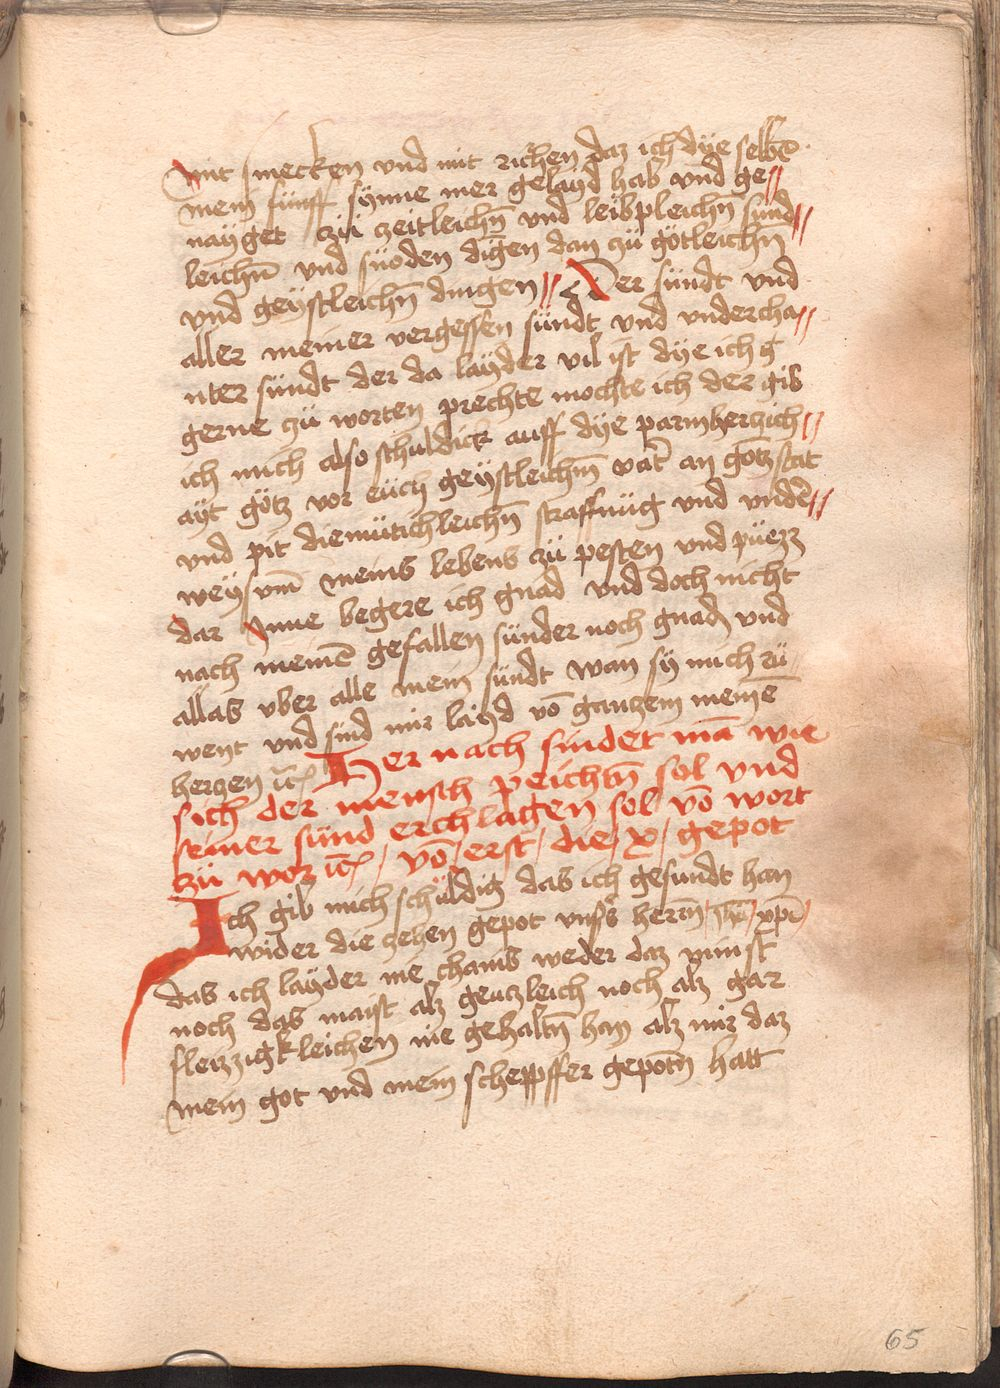 mit smecken vnd mit richen daz ich dÿe selbē
mein fünff sÿnne mer gelaÿd hab vnd ge〃
naÿget zü zeitleichn̄ vnd leibpleichn̄ sünd〃
leichn̄ vnd snöden digen dan zü götleichn̄
vnd geÿstleichn̄ dingen 〃 Der sündt vnd
aller meiner vergessen sündt vnd vndercha〃
nter sündt der da laÿder vil ist dÿe ich
gerne zü worten prechte mochte ich der gib
ich mich also schuldick auff dÿe parmherzich〃
aÿt götz vor eüch geÿstleichm̄ vat̄ an gotz stat
vnd pit diemütichleichn̄ straffnüg vnd vnder〃
weÿs vm̄ meins lebens zü pesten vnd püezz
dar Inne begere ich gnad vnd doch nicht
nach meinē gefallen sünder noch gnadn̄ vnd
allas vber alle mein sündt wan sÿ mich rü〃
went vnd sind mir laÿd vō ganczem meinē
herczen ꝛc̄ Her nach findet mā wie
sich der mensch peichtn̄ sol vnd
seiner sünd erchlagen sol vō wort
zü wor ꝛc̄ / vō / erst / die / x / gepot
Ich gib mich schüldig das ich gesundt han
wider die zehen gepot vnsers herrn̄ / ihū / xpī /
das ich laÿder nie chains weder daz minst
noch das maist alz genczleich noch alz gar
fleizzigkleichen nie gehaltn̄ han alz mir daz
mein got vnd mein scheppffer gepotn̄ hatt
65